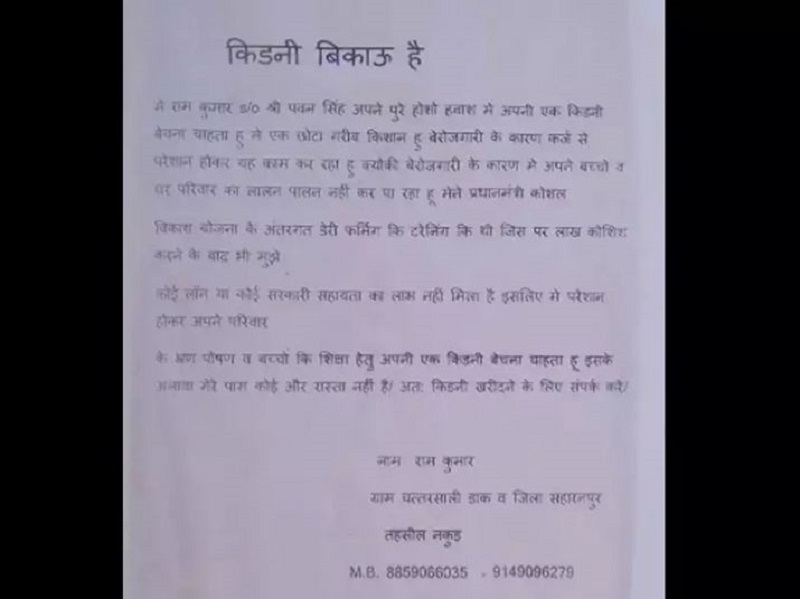 किडनी बिकाऊ है
मे राम कुमार s/o श्री पवन सिंह अपने पुरे होशो हवाश मे अपनी एक किडनी
बेचना चाहता हु मे एक छोटा गरीब किशान हु बेरोजगारी के कारण कर्जा से
परेशान होकर यह काम कर रहा हु क्योंकी बेरोजगारी के कारण मे अपने बच्चो व
घर परिवार का लालन पालन नही कर पा रहा हू मेने प्रधानमंत्री कोशल
विकाश योजना के अंतरगत डेरी फर्मिंग कि टरेनिंग कि थी जिस पर लाख कोशिश
करने के बाद भी मुझे
कोई लॉन या कोई सरकारी सहायता का लाभ नही मिला है इसलिए मे परेशान
होकर अपने परिवार
के भ्रण पोषण व बच्चो कि शिक्षा हेतु अपनी एक किडनी बेचना चाहता हू इसके
अलावा मेरे पास कोई और रास्ता नही है/ अतः किडनी खरीदने के लिए संपर्क करे/
नाम राम कुमार
ग्राम चत्तरसाली डाक व जिला सहारनपुर
तहसील नकुड
M.B. 8859066035 - 9149096279